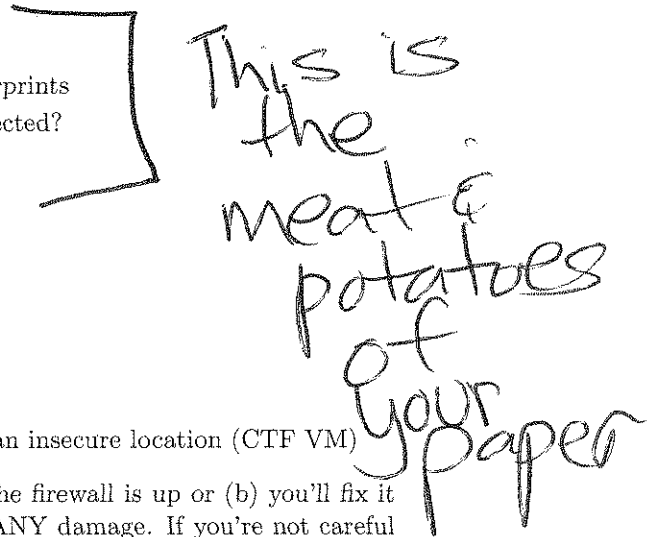 prints
ected?
This is
the
meat &
potatoes
of
your
paper
an insecure location (CTF VM)
he firewall is up or (b) you'll fix it
ANY damage. If you're not careful